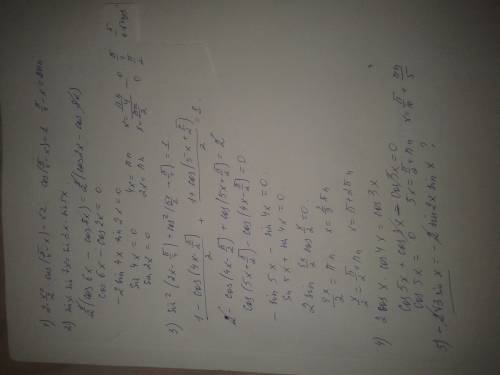 1) 2·cos(π/4 - x) = √2 cos(π/4 - x) = 1 π/4 - x = 2πn
2) sin x sin 7x = sin 3x · sin 5x
(cos 6x - cos 8x) = (cos 2x - cos 8x)
cos 6x - cos 2x = 0
-2 sin 4x sin 2x = 0
sin 4x = 0 4x = πn x = πn/4
sin 2x = 0 2x = πn x = πn/2
3) sin²(2x - π/4) + cos²(5x/2 + π/4) = 1
1 - cos(4x - π/2)/2 + 1 + cos(5x + π/2)/2 = 1
2 - cos(4x - π/2) + cos(5x + π/2) = 2
cos(5x + π/2) - cos(4x - π/2) = 0
- sin 5x - sin 4x = 0
sin 5x + sin 4x = 0
2 sin 9x/2 cos x/2 = 0
9x/2 = πn x = 2/9 πn
x/2 = π/2 + πn x = π + 2πn
4) 2 cos x cos 4x = cos 3x
cos 5x + cos 3x - cos 3x = 0
cos 5x = 0 5x = π/2 + πn x = π/10 + πn/5
5) -√3 sin x = -2 sin 2x sin x ?